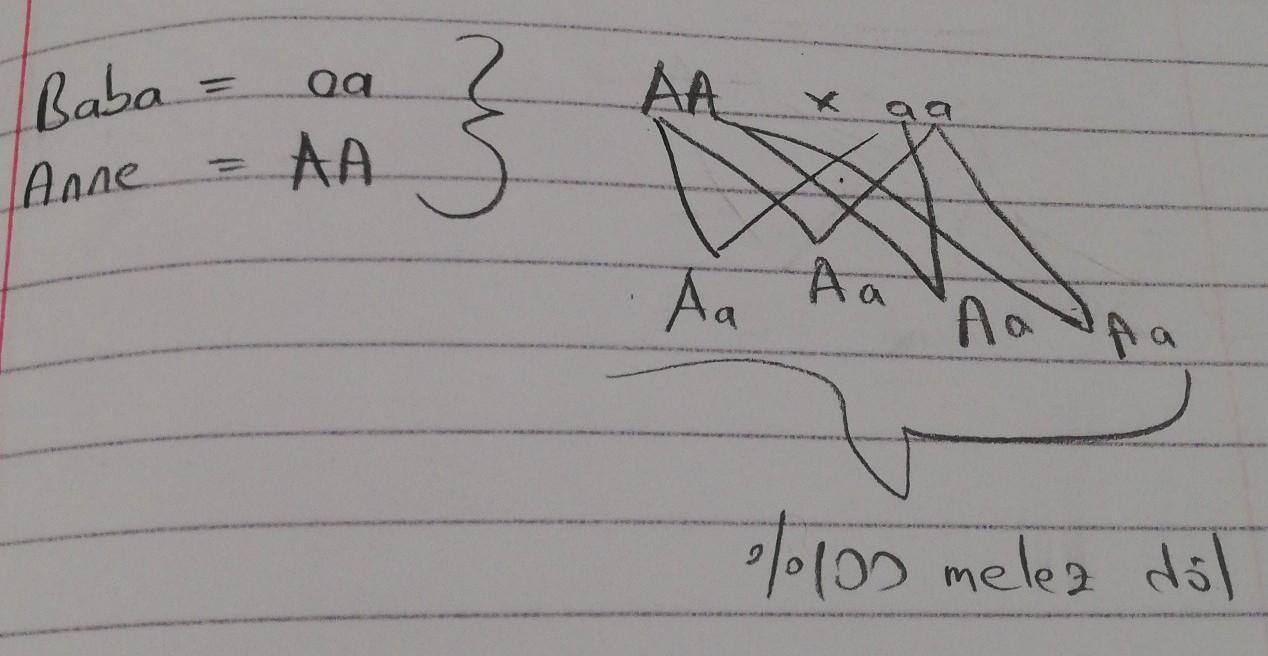 Baba = aa
Anne = AA
AA x aa
Aa Aa Aa Aa
%100 melez döl